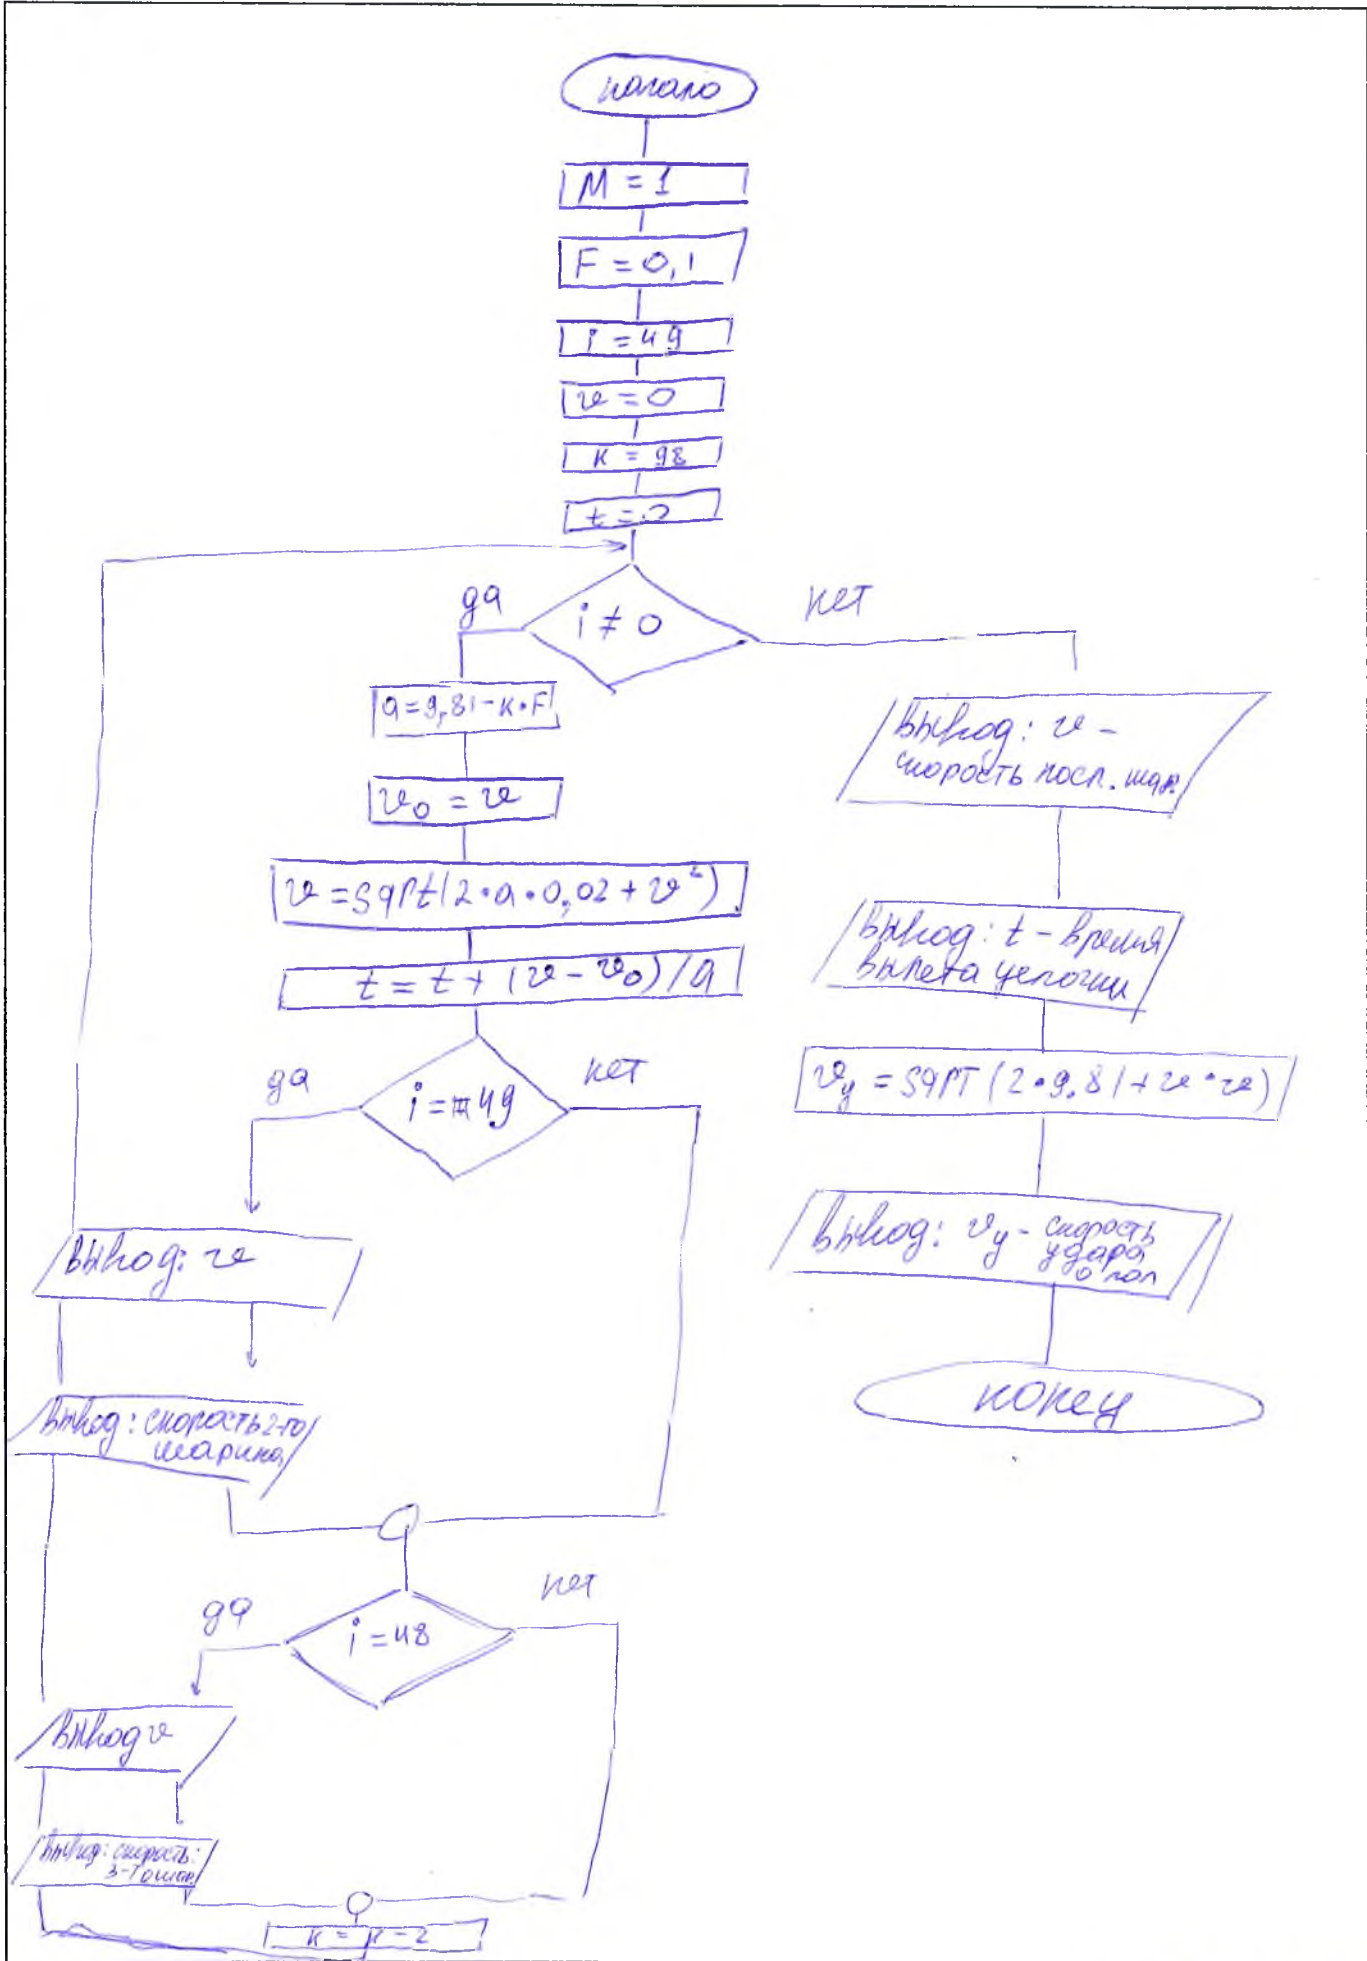 начало
M = 1
F = 0,1
i = 49
v = 0
k = 98
t = 0
да
i ≠ 0
нет
a = 9,81 - k • F
v₀ = v
v = sqrt(2 • a • 0,02 + v²)
t = t + (v - v₀) / a
да
i = 49
нет
вывод: v
вывод: скорость 2-го
шарика
да
i = 48
нет
вывод v
вывод: скорость:
3-го шар.
k = k - 2
вывод: v -
скорость посл. шар.
вывод: t - время
вылета цепочки
v_y = sqrt (2 • 9.81 + v • v)
вывод: v_y - скорость
удара
о пол
конец